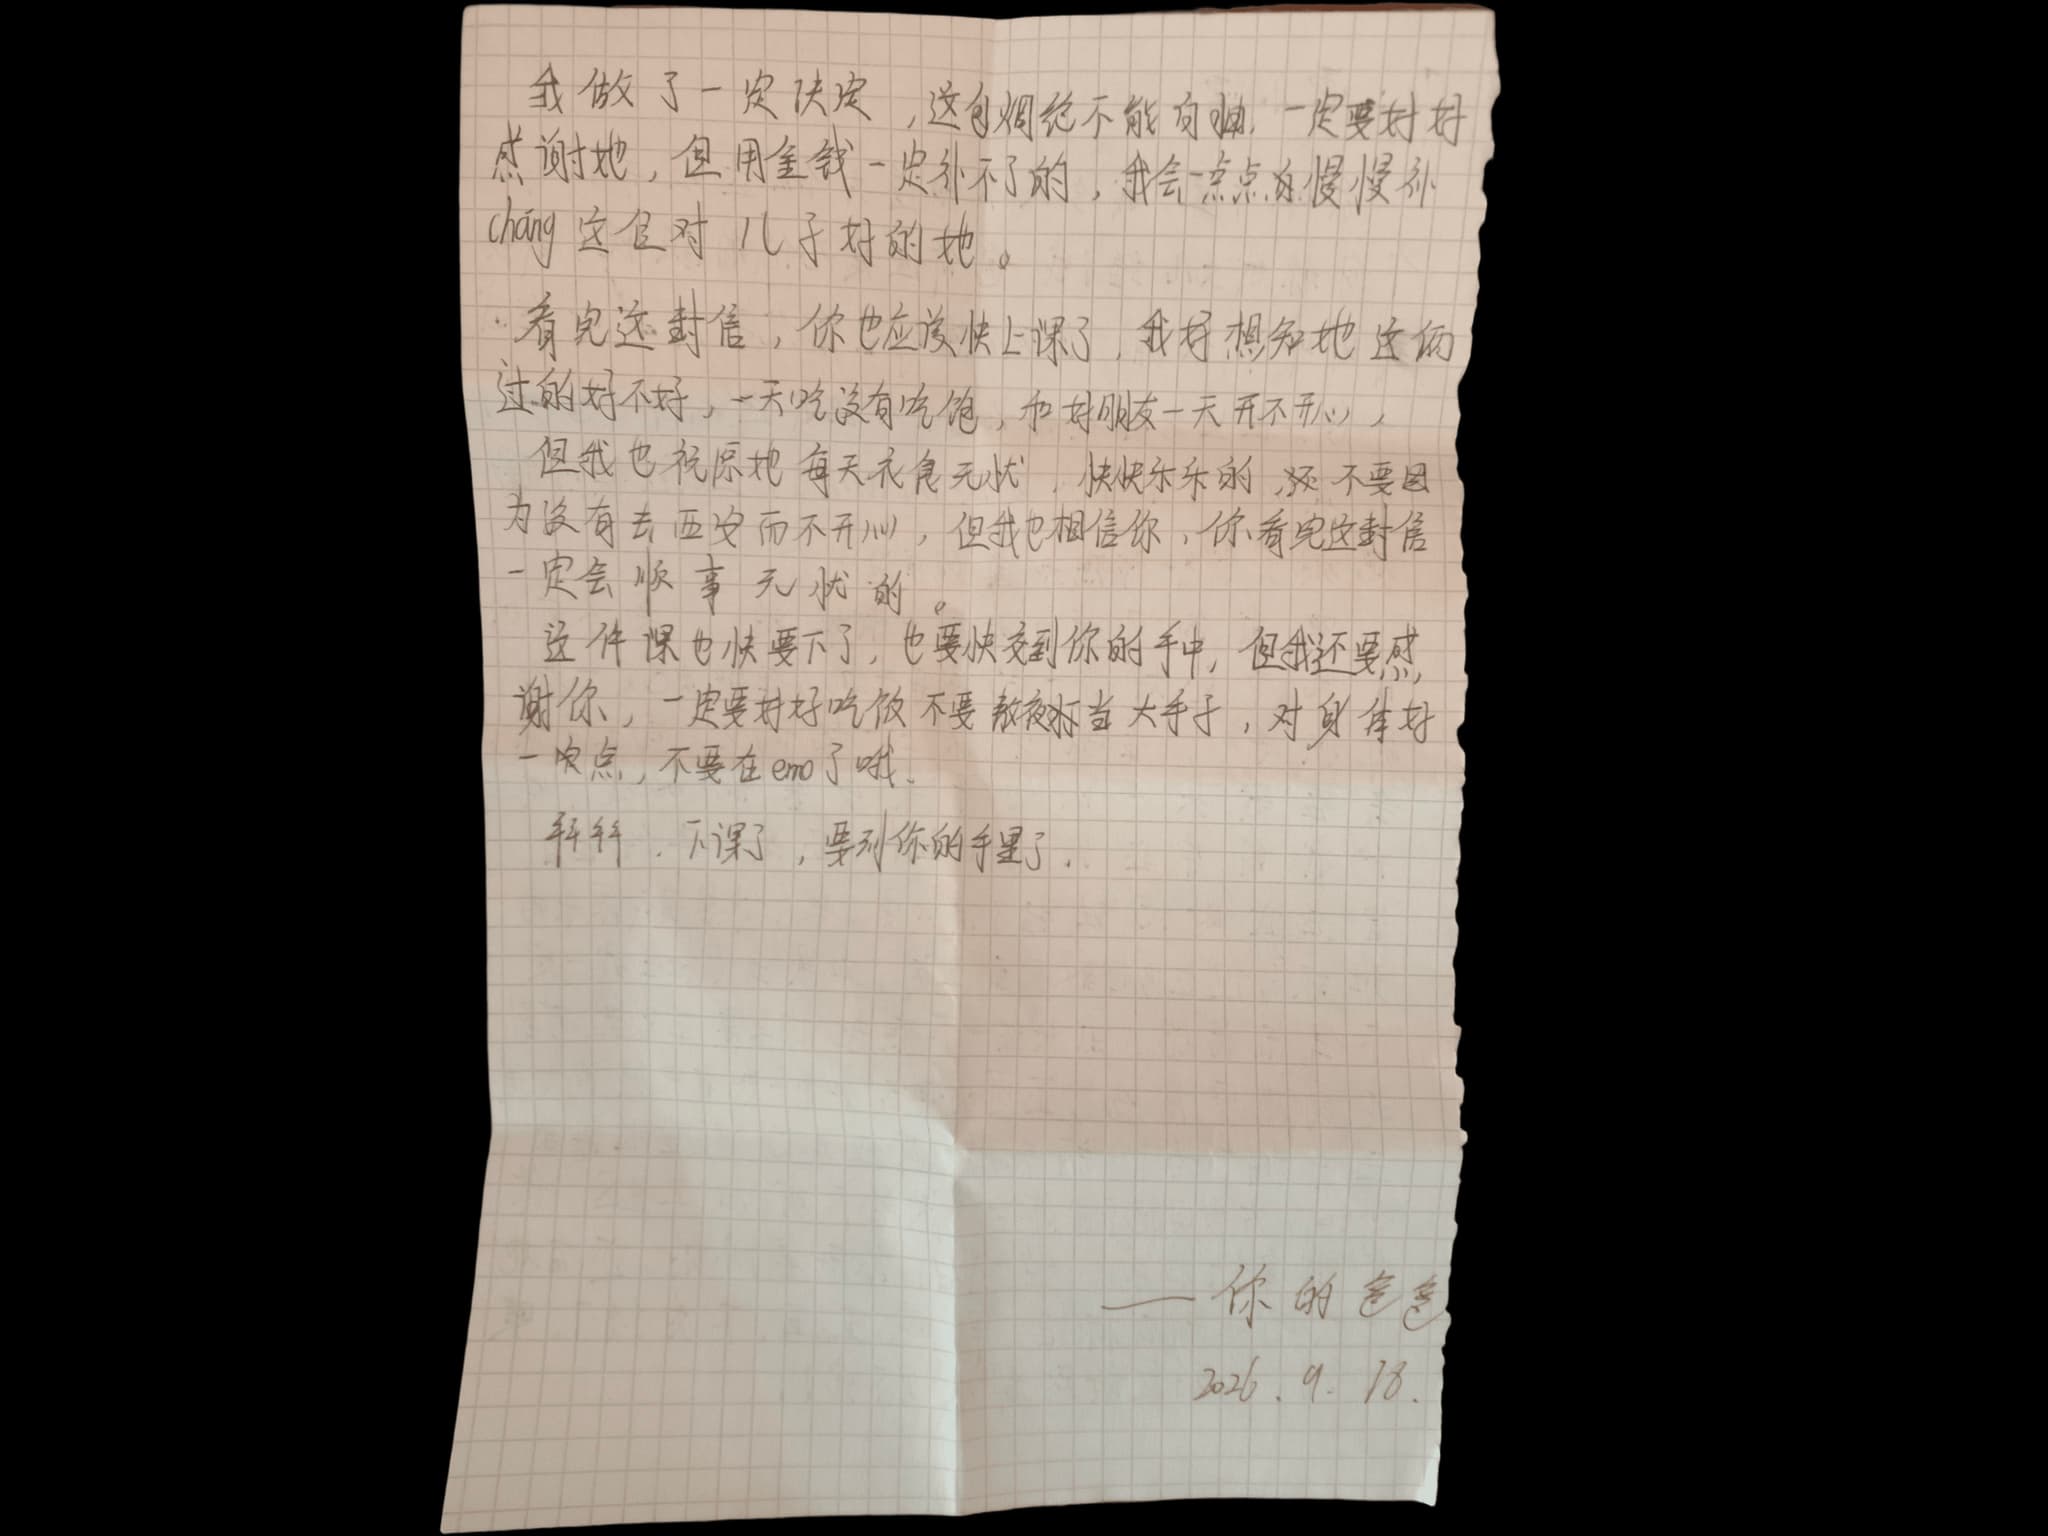 我做了一定决定，这包烟绝不能白抽，一定要好好
感谢她，但用金钱一定补不了的，我会一点点的慢慢补
cháng这位对儿子好的她。
看完这封信，你也应该快上课了，我好想知她这俩
过的好不好，一天吃没有吃饱，和好朋友一天开不开心，
但我也祝愿她每天衣食无忧，快快乐乐的，还不要因
为没有去西安而不开心，但我也相信你，你看完这封信
一定会顺事无忧的。
这件课也快要下了，也要快交到你的手中，但我还要感
谢你，一定要好好吃饭不要熬夜打当大手子，对身体好
一定点，不要在emo了哦.
拜拜.下课了，要到你的手里了.
——你的爸爸
2026.9.18.